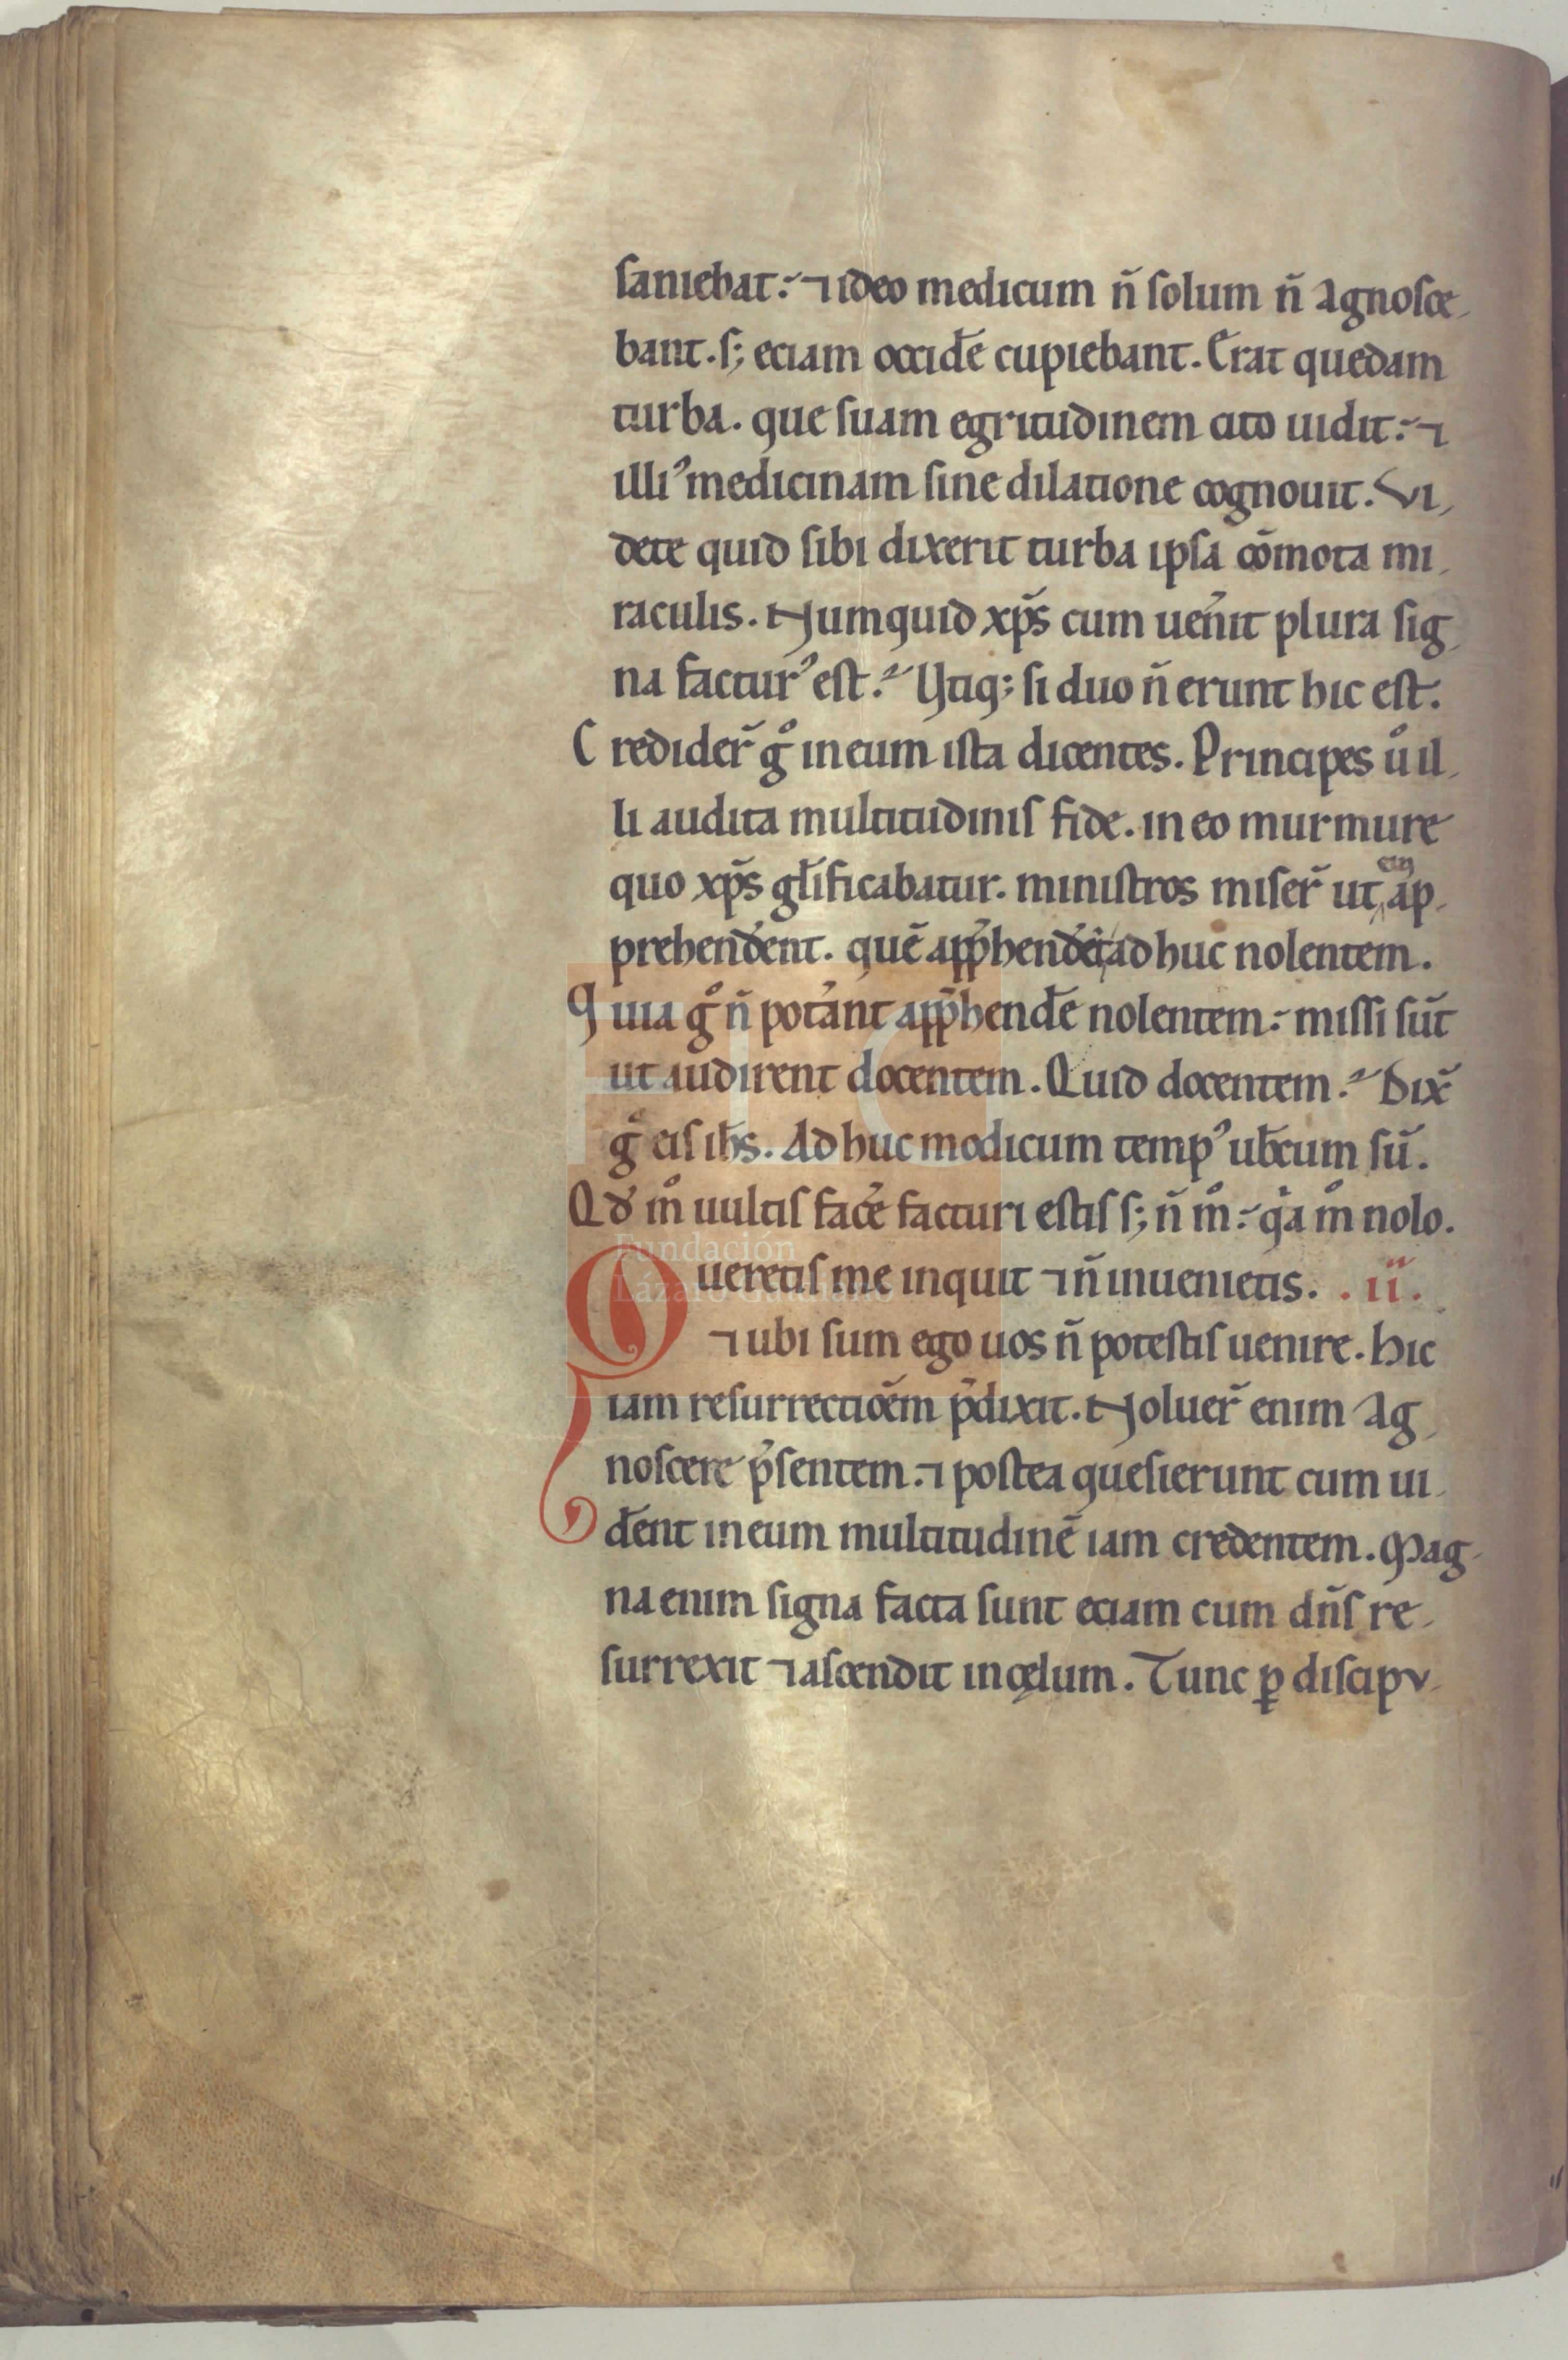 saniebat: ⁊ ideo medicum n̄ solum n̄ agnosce-
bant. s; eciam occid̄e cupiebant. Erat quedam
turba. que suam egritudinem cito uidit: ⁊
illiꝰ medicinam sine dilatione cognouit. Vi-
dete quid sibi dixerit turba ipsa cōmota mi-
raculis. Numquid xp̄s cum uen̄it plura sig-
na facturꝰ est? Vtiq; si duo n̄ erunt hic est.
Credider̄ gͦ in eum ista dicentes. Principes uͦ il-
li audita multitudinis fide. in eo murmure
quo xp̄s gl̄ificabatur. ministros miser̄ ut eū ap-
prehend̄ent. quē app̄hend̄et adhuc nolentem.
Quia gͦ n̄ pot̄ant app̄hend̄e nolentem: missi sūt
ut audirent docentem. Quid docentem? Dix̄
gͦ eis ih̄s. Adhuc modicum tempꝰ ub̄cum sū.
Qd̄ mͦ uultis fac̄e facturi estis s; n̄ mͦ: qͣa mͦ nolo.
Queretis me inquit ⁊ n̄ inuenietis. .ii.
⁊ ubi sum ego uos n̄ potestis uenire. hic
iam resurrectioēm p̄dixit. Noluer̄ enim ag-
noscere p̄sentem. ⁊ postea quesierunt cum ui-
d̄ent in eum multitudinē iam credentem. Mag-
na enim signa facta sunt eciam cum dn̄s re-
surrexit ⁊ ascendit in cęlum. Tunc ꝑ discipu-
Fundación
Lázaro Galdiano